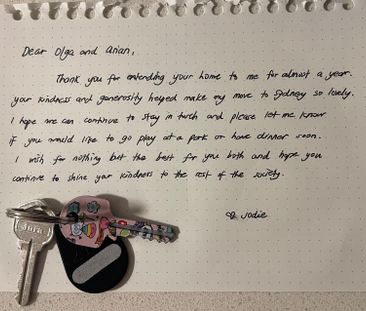 Dear Olga and Arian,
Thank you for extending your home to me for almost a year.
Your kindness and generosity helped make my move to Sydney so lovely.
I hope we can continue to stay in touch and please let me know
if you would like to go play at a park or have dinner soon.
I wish for nothing but the best for you both and hope you
continue to shine your kindness to the rest of the society.
Jodie